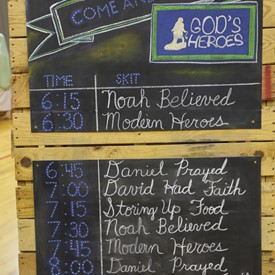 COME AN
GOD'S
HEROES
TIME SKIT
6:15 Noah Believed
6:30 Modern Heroes
6:45 Daniel Prayed
7:00 David Had Faith
7:15 Storing Up Food
7:30 Noah Believed
7:45 Modern Heroes
8:00 Daniel Prayed